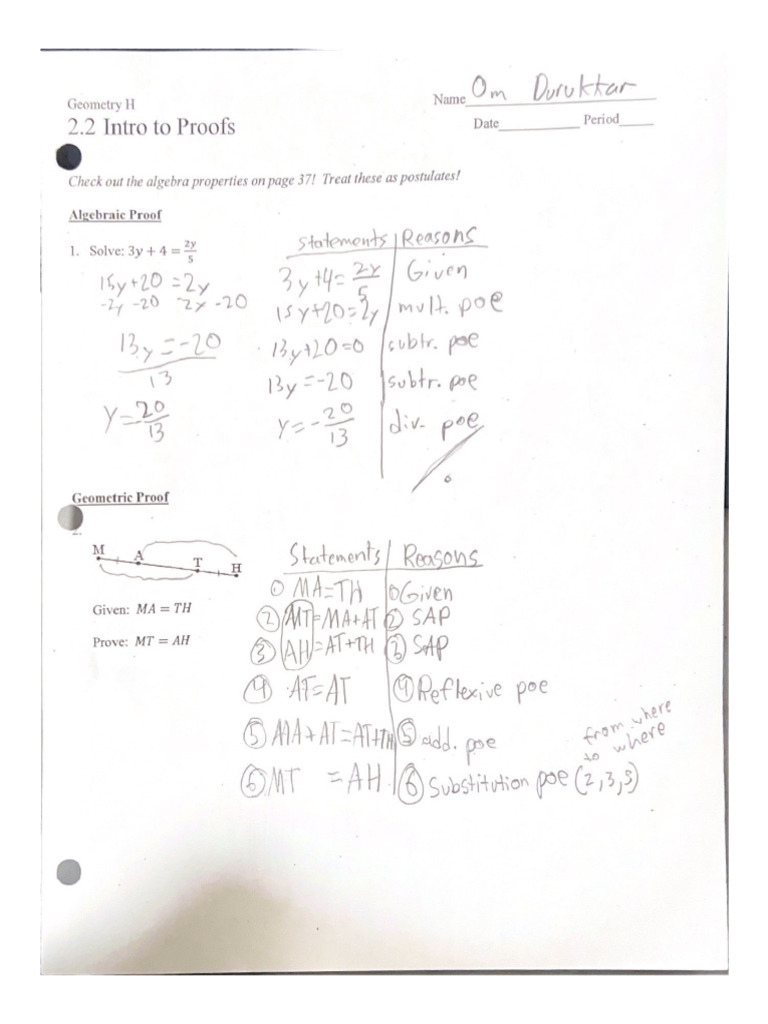 Geometry H
Name Om Duruktar
2.2 Intro to Proofs
Date__________ Period_____
Check out the algebra properties on page 37! Treat these as postulates!
Algebraic Proof
1. Solve: 3y + 4 = 2y/5
15y+20 = 2y
-2y -20 -2y -20
13y = -20
13
y = -20/13
Statements | Reasons
3y+4 = 2y/5 | Given
15y+20=2y | mult. poe
13y+20=0 | subtr. poe
13y = -20 | subtr. poe
y = -20/13 | div. poe
Geometric Proof
2.
M A T H
Given: MA = TH
Prove: MT = AH
Statements | Reasons
① MA=TH | ① Given
② MT=MA+AT | ② SAP
③ AH=AT+TH | ③ SAP
④ AT=AT | ④ Reflexive poe
⑤ MA+AT=AT+TH | ⑤ add. poe
⑥ MT = AH | ⑥ Substitution poe (2,3,5)
from where
to where